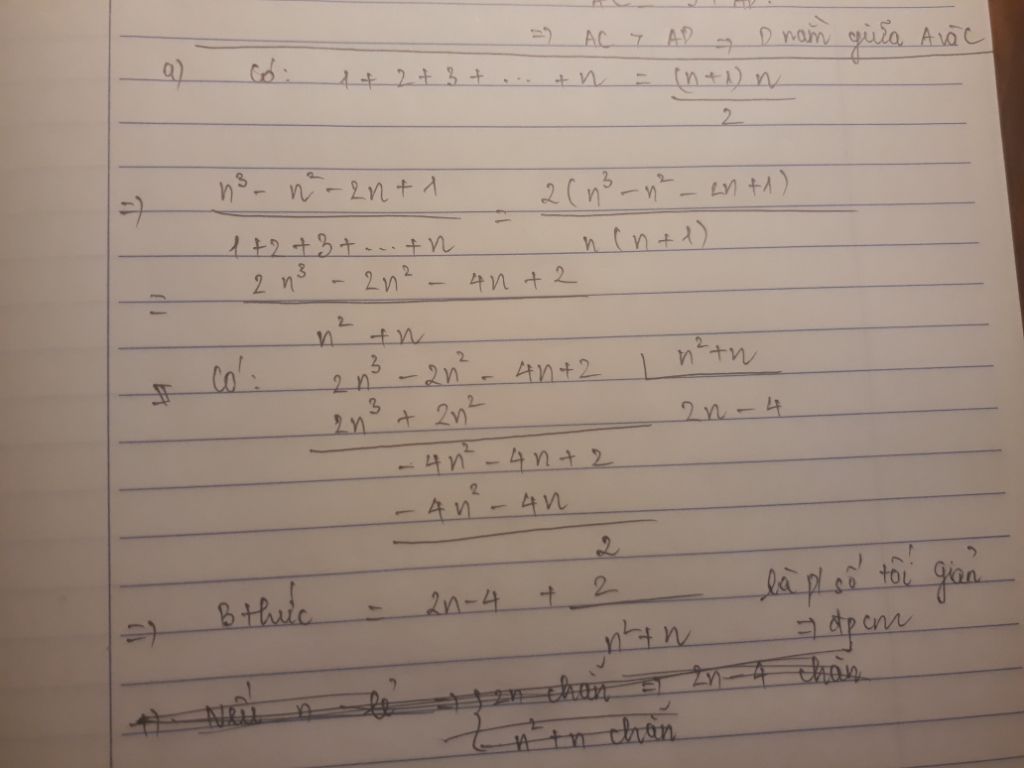 => AC > AD => D nằm giữa A và C
a) Có: 1 + 2 + 3 + ... + n = (n+1) n / 2
=> n³ - n² - 2n + 1 / 1 + 2 + 3 + ... + n = 2 (n³ - n² - 2n + 1) / n (n + 1)
= 2n³ - 2n² - 4n + 2 / n² + n
Có: 2n³ - 2n² - 4n + 2 | n² + n
2n³ + 2n² 2n - 4
- 4n² - 4n + 2
- 4n² - 4n
2
=> B thức = 2n - 4 + 2 / n² + n là p/số tối giản
=> đpcm
+) Nếu n lẻ => { 2n chẵn => 2n - 4 chẵn
n² + n chẵn